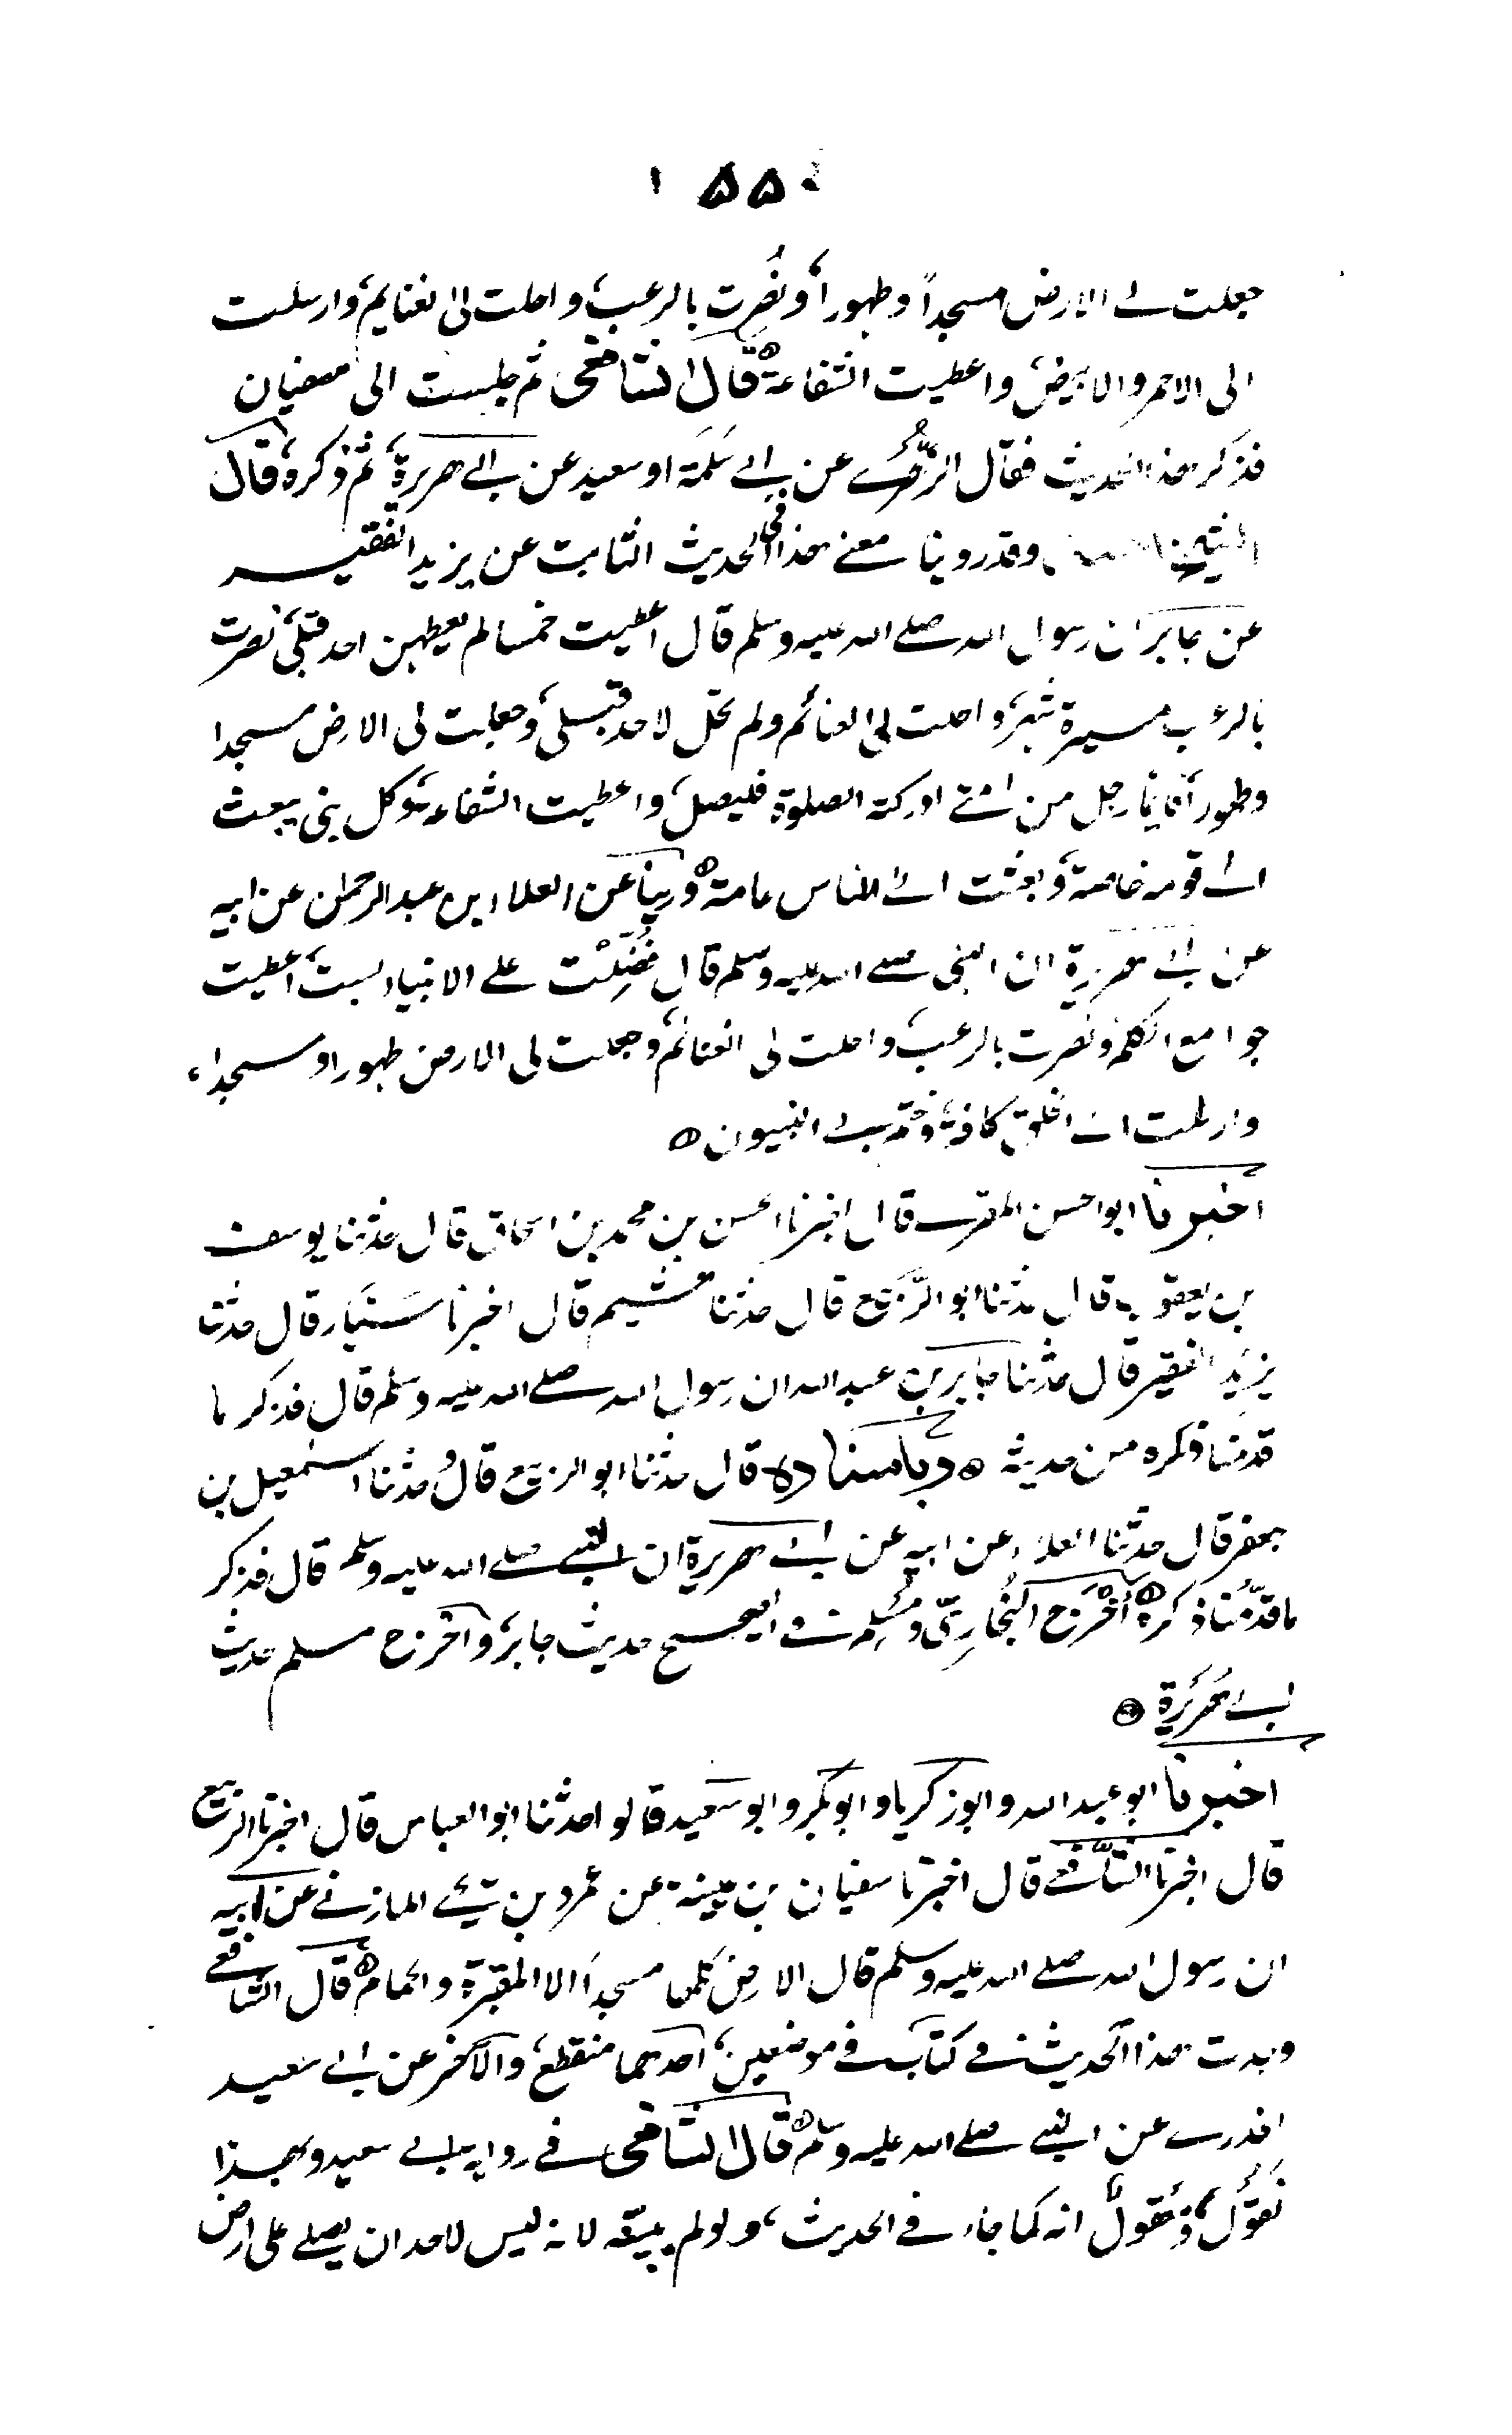 ١ ۵۵
جعلت لے الارض مسجداً وطہوراً، ونُصِرت بالرعب، واحلت لی الغنایم، وارسلت
الی الاحمر والابیض، واعطیت الشفاعة ه قال الشافعی ثم جلست الی سفیان
فذکر هذا الحدیث فقال الزُّهری عن ابے سَلَمَة او سعید عن ابے هریرة، ثم ذکره، قال
الشیخ وقد روینا معنے هذا فی الحدیث الثابت عن یزید الفقیر
عن جابر ان رسول الله صلے الله علیه وسلم قال اعطیت خمسا لم یعطهن احد قبلی، نصرت
بالرعب مسیرة شهر، واحلت لی الغنائم ولم تحل لاحد قبلی، وجعلت لی الارض مسجدا
وطهوراً فایما رجل من امتے ادرکته الصلوة فلیصل، واعطیت الشفاعة، وکل نبی یبعث
الے قومه خاصة، وبعثت الے الناس عامة ه وروینا عن العلاء بن عبد الرحمٰن عن ابیه
عن ابے هریرة ان النبی صلے الله علیه وسلم قال فُضِّلْت علے الانبیاء بست، اعطیت
جوامع الکلم، ونصرت بالرعب، واحلت لی الغنائم، وجعلت لی الارض طهورا ومسجدا،
وارسلت الے الخلق کافة، وختم بے النبیون ه
اخبرنا ابو الحسن المقرے قال اخبرنا الحسن بن محمد بن اسحاق قال حدثنا یوسف
بن یعقوب قال حدثنا ابو الرَّبیع قال حدثنا هشیم قال اخبرنا سَیَّار قال حدثنا
یزید الفقیر قال حدثنا جابر بن عبد الله ان رسول الله صلے الله علیه وسلم قال فذکر ما
قدمنا ذکره من حدیثه ه وباسناده قال حدثنا ابو الربیع قال حدثنا اسمٰعیل بن
جعفر قال حدثنا العلاء عن ابیه عن ابے هریرة ان النبے صلے الله علیه وسلم قال فذکر
ما قدَّمْنا ذکره ه أخْرَج البُخَارِیّ ومُسْلِم فے الصحیح حدیث جابر، واخرج مسلم حدیث
ابے هُرَیْرَة ه
اخبرنا ابو عبد الله وابو زکریا وابو بکر وابو سعید قالوا حدثنا ابو العباس قال اخبرنا الربیع
قال اخبرنا الشَّافعے قال اخبرنا سفیان بن عیینة عن عمرو بن یحیے المازنے عن ابیه
ان رسول الله صلے الله علیه وسلم قال الارض کلها مسجداً الا المقبرة والحمام ه قال الشافعے
وجدت هذا الحدیث فے کتابے فے موضعین، احدهما منقطع، والآخر عن ابے سعید
الخدرے عن النبے صلے الله علیه وسلم ه قال الشافعی فے روایة ابے سعید وبهذا
نقول، ومعقول انه کما جاء فے الحدیث، ولو لم یبینه لانه لیس لاحد ان یصلے علی ارض